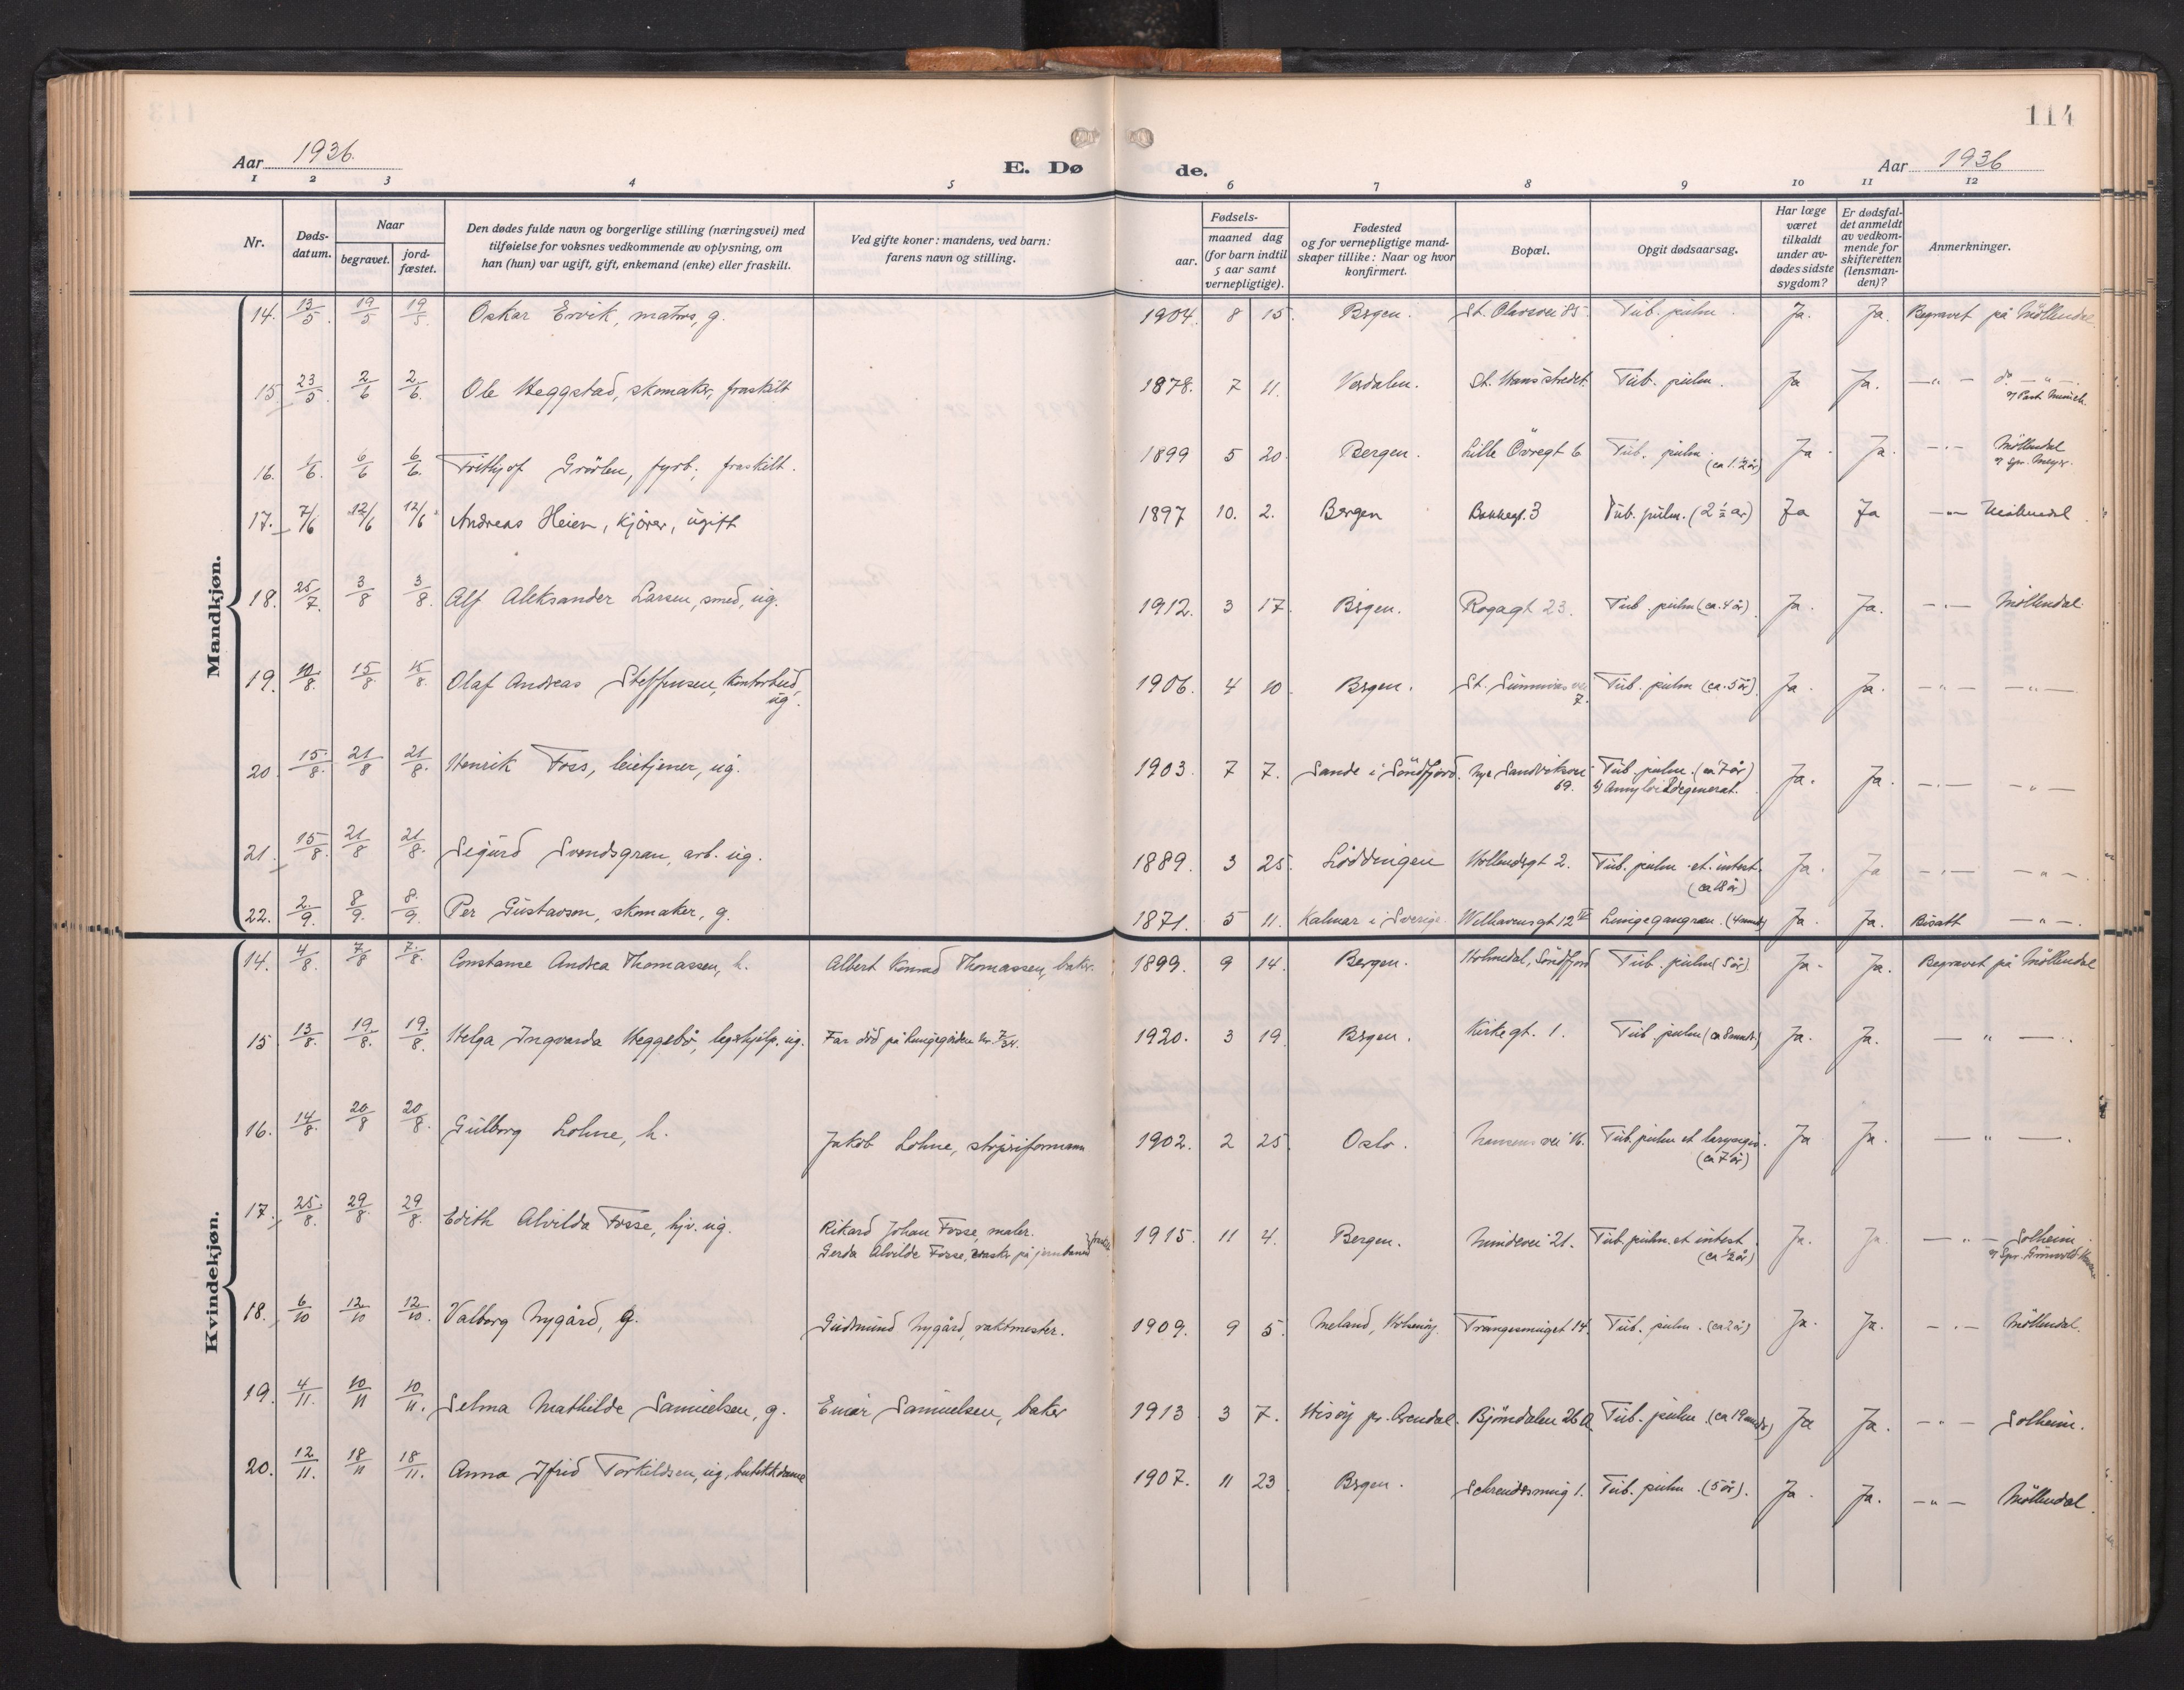 114
Aar 1936.
E. Dø
de.
Aar 1936
1 2 3 4 5 6 7 8 9 10 11 12
Nr.
Døds-
datum.
Naar
begravet.
jord-
fæstet.
Den dødes fulde navn og borgerlige stilling (næringsvei) med
tilføielse for voksnes vedkommende av oplysning, om
han (hun) var ugift, gift, enkemand (enke) eller fraskilt.
Ved gifte koner: mandens, ved barn:
farens navn og stilling.
Fødsels-
aar.
maaned dag
(for barn indtil
5 aar samt
vernepligtige).
Fødested
og for vernepligtige mand-
skaper tillike: Naar og hvor
konfirmert.
Bopæl.
Opgit dødsaarsag.
Har læge
været
tilkaldt
under av-
dødes sidste
sygdom?
Er dødsfal-
det anmeldt
av vedkom-
mende for
skifteretten
(lensman-
den)?
Anmerkninger.
Mandkjøn.
14. 13/5 19/5 19/5. Oskar Ervik, matros, g. 1904. 8 15. Bergen. St. Olavsvei 85. Tub. pulm. Ja. Ja. Begravet på Möllendal.
15. 23/5 2/6 2/6. Ole Heggstad, skomaker, fraskilt 1878. 7 11. Verdalen. St. Hansstredet. Tub. pulm. Ja Ja. —"— do. —"—
v/ Past. Munch.
16. 1/6. 6/6 6/6. Frithjof Grøvlen, fyrb., fraskilt. 1899 5 20. Bergen. Lille Övregt 6 Tub. pulm. (ca 1 1/2 år) Ja. Ja. —"— Möllendal
v/ Spr. Meyer.
17. 7/6 12/6 12/6 Andreas Heien, kjører, ugift 1897 10. 2. Bergen Bakkegt. 3 Tub. pulm. (2 1/2 år) Ja Ja —"— Möllendal
18. 25/7. 3/8 3/8. Alf Aleksander Larsen, smed, ug. 1912. 3 17. Bergen. Rogagt 23. Tub. pulm (ca. 4 år) Ja. Ja. —"— Möllendal.
19. 10/8. 15/8 15/8. Olaf Andreas Steffensen, kontorbud,
ug. 1906. 4 10. Bergen. St. Sunnivas vei
7. Tub. pulm (ca. 5 år). Ja. Ja. —"— —"—
20. 15/8. 21/8 21/8. Henrik Foss, leietjener, ug. 1903. 7 7. Sande i Söndfjord. Nye Sandviksvei
69. Tub. pulm. (ca 7 år)
Amyloiddegenerat. Ja. Ja. —"— —"—
21. 15/8. 21/8 21/8. Sigurd Svendsgran, arb. ug. 1889. 3 25. Löddingen Hollendergt 2. Tub. pulm. et. intest.
(ca 18 år) Ja. Ja —"— —"—
22. 2/9. 8/9. 8/9. Per Gustavson, skomaker, g. 1871. 5 11. Kalmar i Sverige Welhavensgt 12 IV Lungegangræn. (4 mndr) Ja. Ja. Bisatt —"—
Kvindekjøn.
14. 4/8. 7/8 7/8. Constance Andrea Thomassen, h. Albert Konrad Thomassen, baker. 1899. 9 14. Bergen. Holmedal, Söndfjord Tub. pulm (5 år) Ja. Ja. Begravet på Möllendal
15 13/8. 19/8. 19/8. Helga Ingvarda Heggebø, legehjelp. ug. Far död på Lungegården 1920. 3 19. Bergen. Kirkegt. 1. Tub. pulm (ca 8 mndr.) Ja. Ja. —"—
16. 14/8. 20/8 20/8. Gulborg Lohne, h. Jakob Lohne, stoperiformann 1902. 2 25. Oslo. Nansens vei 16. Tub. pulm et laryngis.
(ca 7 år) Ja Ja. —"—
17. 25/8. 29/8. 29/8. Edith Alvilda Fosse, hj. ug. Rikard Johan Fosse, maler.
Gerda Alvilde Fosse, vask. på jernbanen 1915. 11 4. Bergen. Lundevei 21. Tub. pulm. et intest.
(ca 1/2 år) Ja. Ja. —"— Solheim.
18. 6/10 12/10 12/10. Valborg Nygård, g. Gudmund Nygård, vaktmester. 1909. 9 5. Meland, Holsenöy. Trangesmuget 14. Tub. pulm. (ca 2 år) Ja. Ja. —"— Möllendal.
19. 4/11. 10/11 10/11. Selma Mathilde Samuelsen, g. Einar Samuelsen, baker 1913 3 7. Hisöy pr. Arendal. Bjöndalen 26 A Tub. pulm. (ca 19 mndr) Ja Ja. —"— Solheim.
20. 12/11. 18/11 18/11. Anna Ifrid Torkildsen, ug, butikkdame 1907. 11 23. Bergen. Schreudersmug 1. Tub. pulm. (5 år). Ja. Ja. —"— Möllendal.